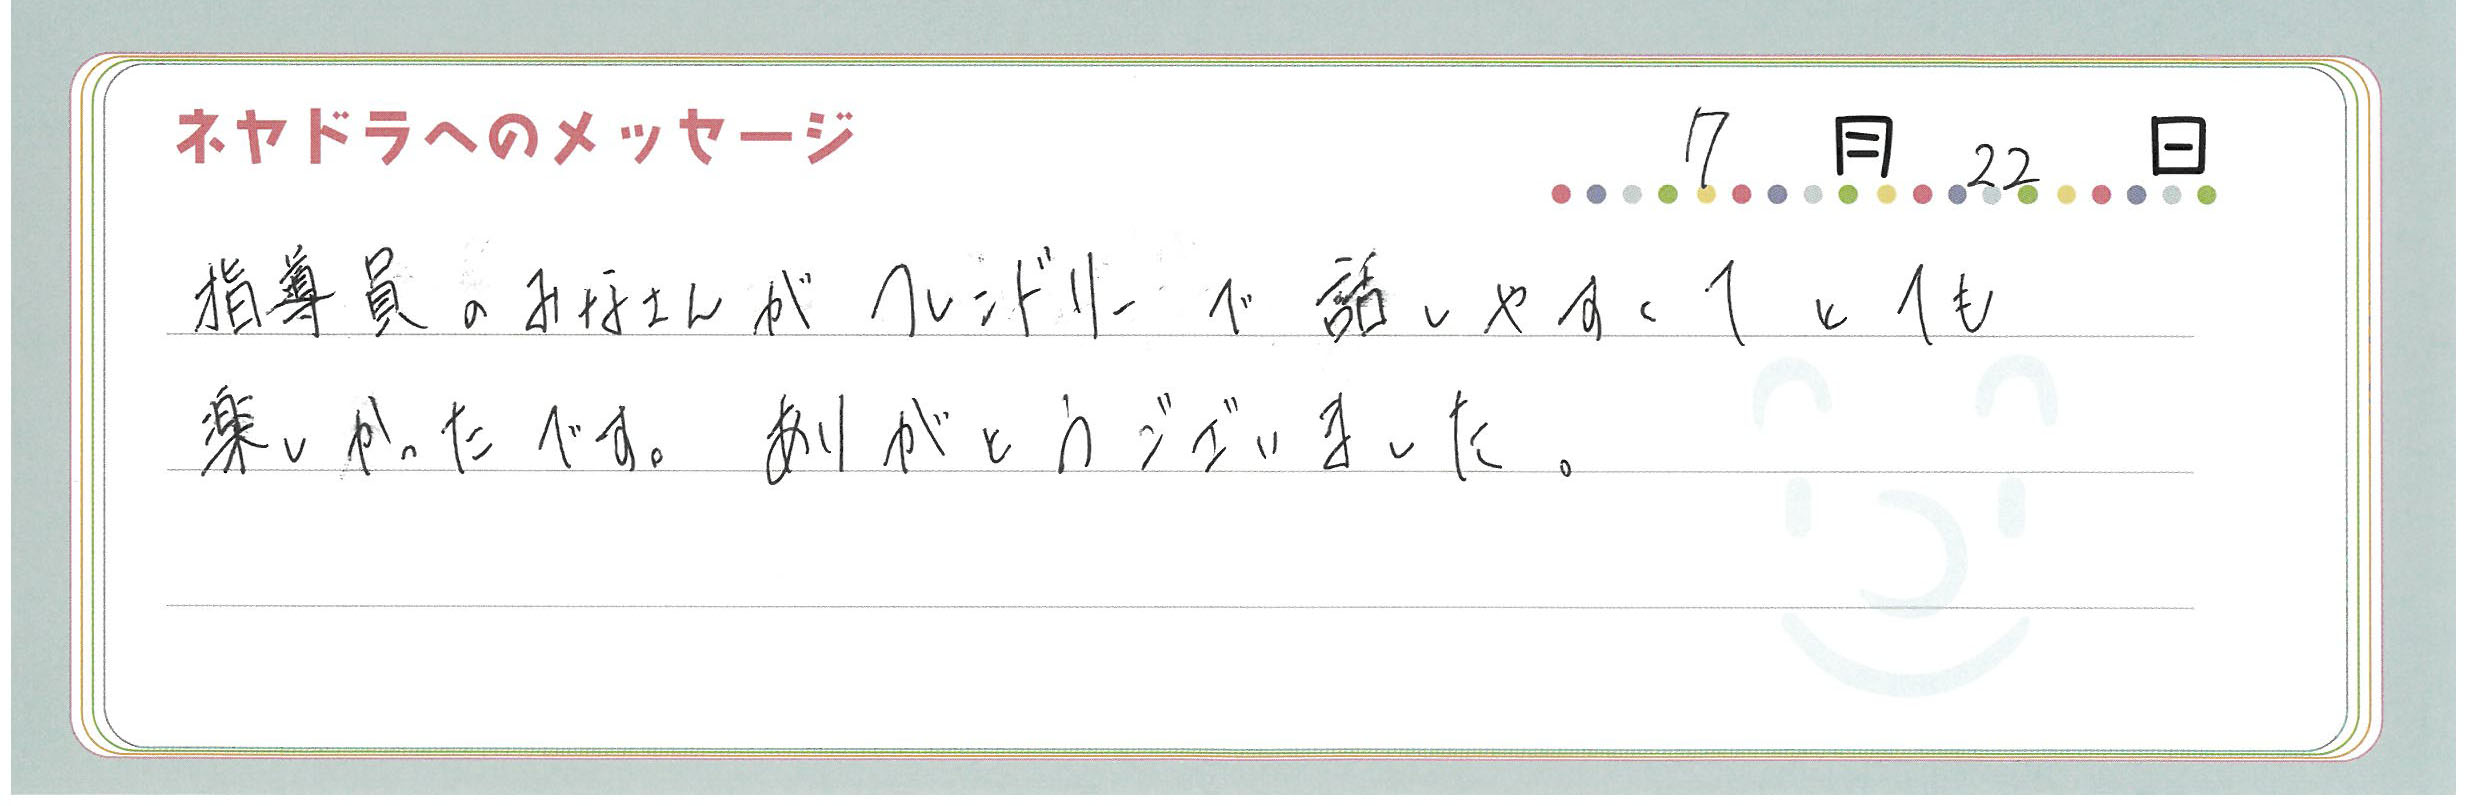 ネヤドラへのメッセージ
7月22日
指導員のお好さんがフレンドリーで話しやすくてとても
楽しかったです。ありがとうございました。